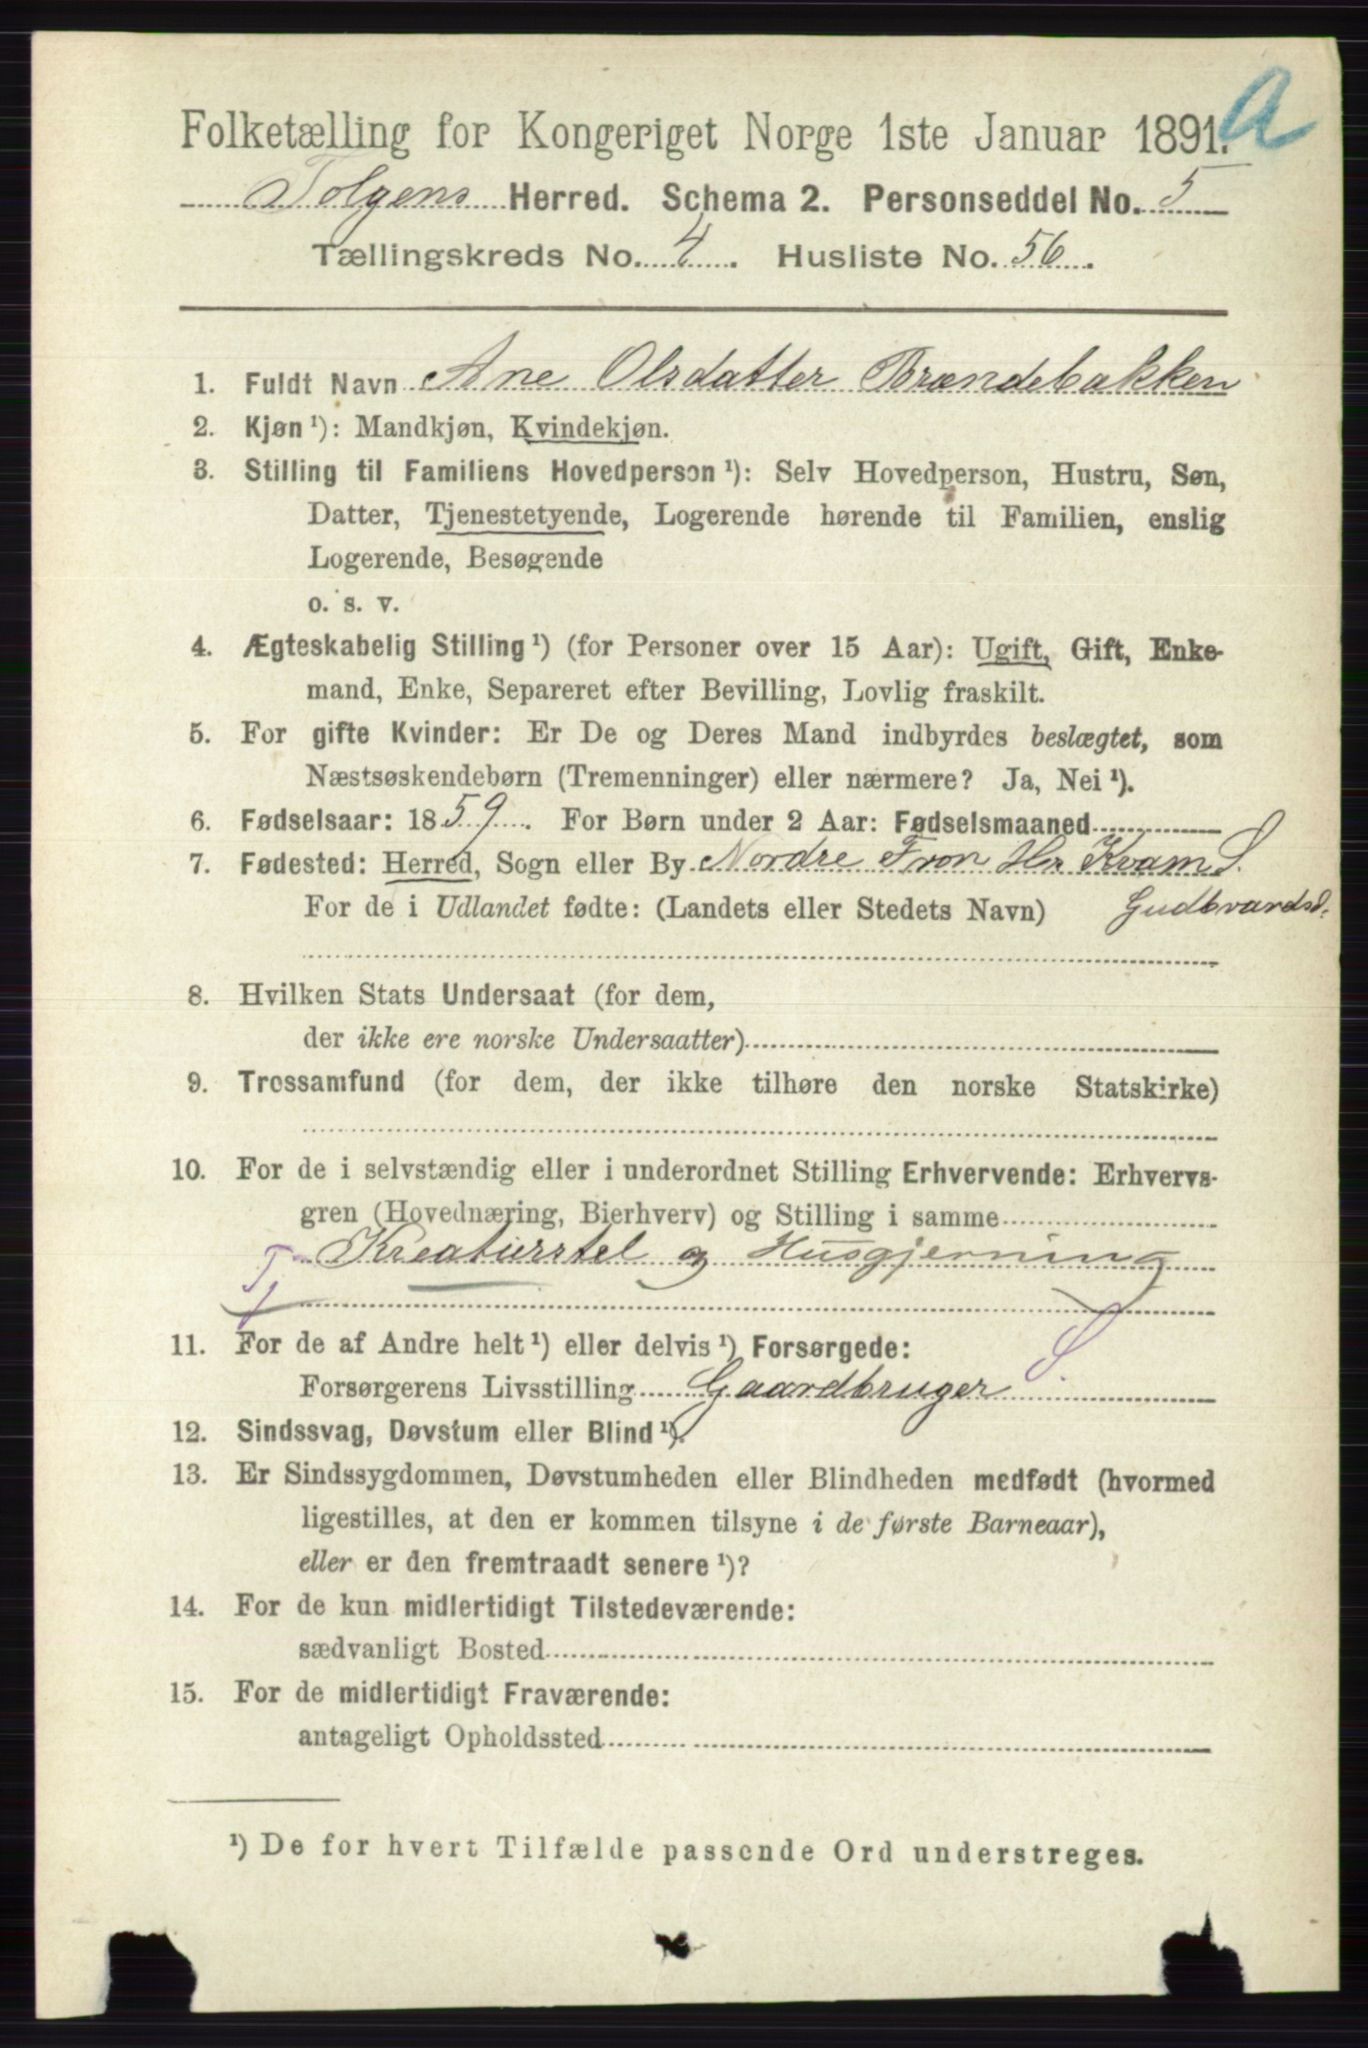 A
Folketælling for Kongeriget Norge 1ste Januar 1891.
Tolgens Herred. Schema 2. Personseddel No. 5
Tællingskreds No. 4. Husliste No. 56.
1. Fuldt Navn Ane Olsdatter Brændebakken
2. Kjøn ¹): Mandkjøn, Kvindekjøn.
3. Stilling til Familiens Hovedperson ¹): Selv Hovedperson, Hustru, Søn,
Datter, Tjenestetyende, Logerende hørende til Familien, enslig
Logerende, Besøgende
o. s. v.
4. Ægteskabelig Stilling ¹) (for Personer over 15 Aar): Ugift, Gift, Enke-
mand, Enke, Separeret efter Bevilling, Lovlig fraskilt.
5. For gifte Kvinder: Er De og Deres Mand indbyrdes beslægtet, som
Næstsøskendebørn (Tremenninger) eller nærmere? Ja, Nei ¹).
6. Fødselsaar: 1859. For Børn under 2 Aar: Fødselsmaaned
7. Fødested: Herred, Sogn eller By Nordre Fron Hr Kvam S.
For de i Udlandet fødte: (Landets eller Stedets Navn) Gudbrandsd.
8. Hvilken Stats Undersaat (for dem,
der ikke ere norske Undersaatter)
9. Trossamfund (for dem, der ikke tilhøre den norske Statskirke)
10. For de i selvstændig eller i underordnet Stilling Erhvervende: Erhvervs-
gren (Hovednæring, Bierhverv) og Stilling i samme
Tj Kreaturstel og Husgjerning
11. For de af Andre helt ¹) eller delvis ¹) Forsørgede:
Forsørgerens Livsstilling Gaardbruger S.
12. Sindssvag, Døvstum eller Blind ¹).
13. Er Sindssygdommen, Døvstumheden eller Blindheden medfødt (hvormed
ligestilles, at den er kommen tilsyne i de første Barneaar),
eller er den fremtraadt senere ¹)?
14. For de kun midlertidigt Tilstedeværende:
sædvanligt Bosted
15. For de midlertidigt Fraværende:
antageligt Opholdssted
¹) De for hvert Tilfælde passende Ord understreges.